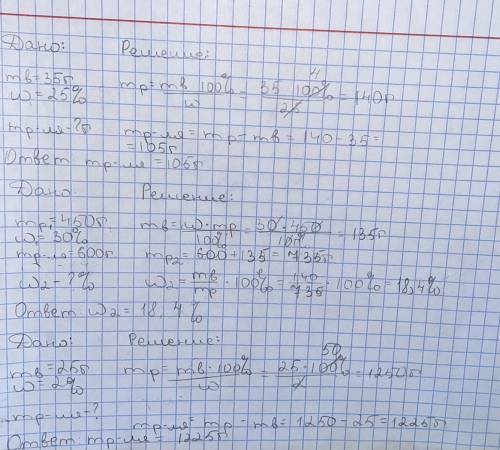 Дано: Решение:
mв = 35г mр = mв 100% / w = 35 100% / 25 = 140г
4
w = 25%
mр-ля - ?г mр-ля = mр - mв = 140 - 35 =
= 105г
Ответ mр-ля = 105г
Дано Решение:
mр₁ = 450г mв = w · mр / 100% = 30 · 450 / 100 = 135г
w₁ = 30%
mр-ля = 600г mр₂ = 600 + 135 = 735г
w₂ = ?% w₂ = mв / mр · 100% = 140 / 735 · 100% = 18,4%
Ответ w₂ = 18,4%
Дано: Решение:
50
mв = 25г mр = mв · 100% / w = 25 · 100% / 2 = 1250г
w = 2%
mр-ля - ?
mр-ля = mр - mв = 1250 - 25 = 1225г
Ответ: mр-ля = 1225г